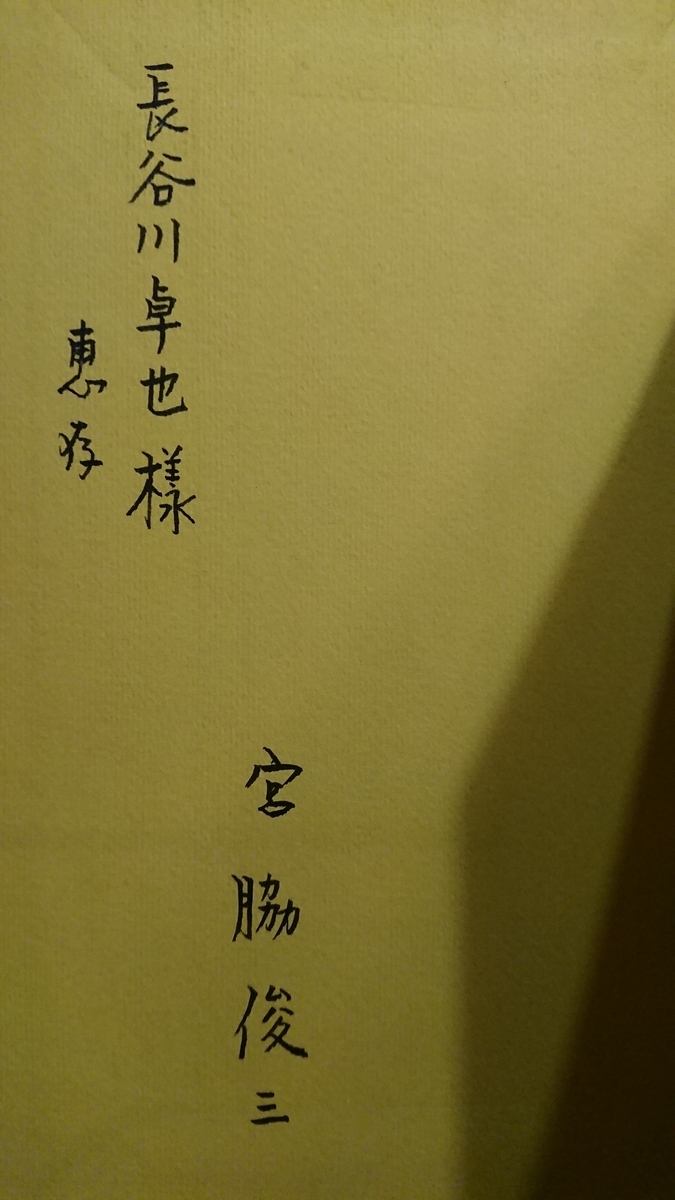 宮脇俊三
長谷川卓也様
惠存